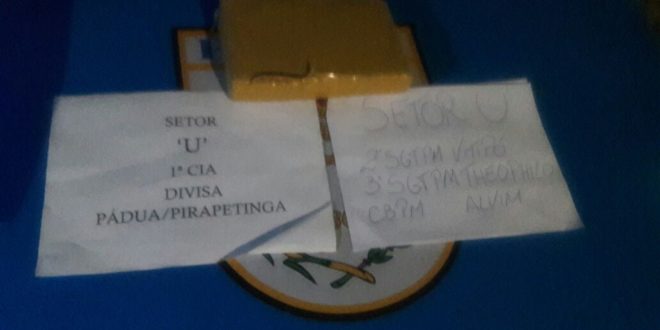 SETOR
'U'
1ª CIA
DIVISA
PÁDUA/PIRAPETINGA
SETOR U
SGTPM
3º SGTPM THEOPHILO
CBPM ALVIM